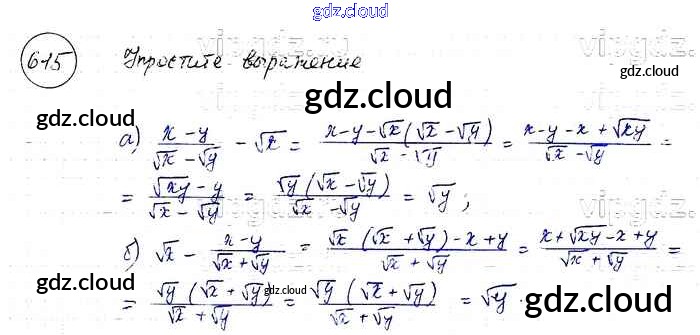 gdz.cloud
615 Упростите выражение
gdz.cloud
gdz.cloud
gdz.cloud
а) (x - y)/(√x - √y) - √x = (x - y - √x(√x - √y))/(√x - √y) = (x - y - x + √xy)/(√x - √y) =
= (√xy - y)/(√x - √y) = (√y(√x - √y))/(√x - √y) = √y;
gdz.cloud
б) √x - (x - y)/(√x + √y) = (√x(√x + √y) - x + y)/(√x + √y) = (x + √xy - x + y)/(√x + √y) =
gdz.cloud
gdz.cloud
= (√y(√x + √y))/(√x + √y) = (√y(√x + √y))/(√x + √y) = √y.
gdz.cloud